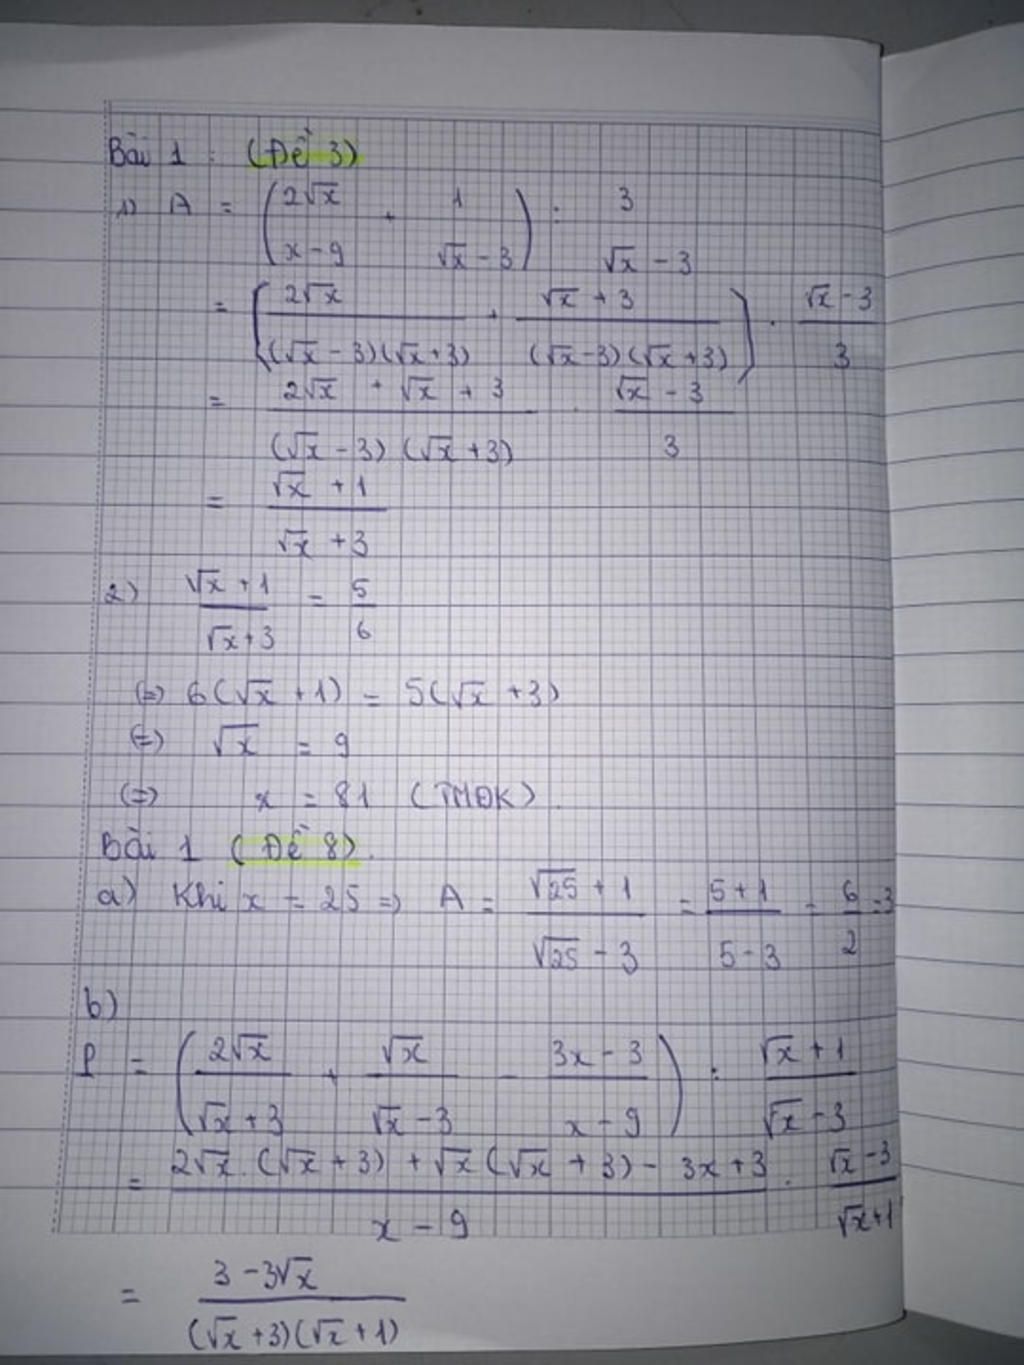 Bài 1 : (Đề 3)
1) A = (2√x / x - 9 + 1 / √x - 3) : 3 / √x - 3
= (2√x / (√x - 3)(√x + 3) + √x + 3 / (√x - 3)(√x + 3)) . √x - 3 / 3
= 2√x + √x + 3 / (√x - 3)(√x + 3) . √x - 3 / 3
= √x + 1 / √x + 3
2) √x + 1 / √x + 3 = 5 / 6
(=) 6(√x + 1) = 5(√x + 3)
(=) √x = 9
(=) x = 81 (TMĐK).
Bài 1 (Đề 8).
a) Khi x = 25 => A = √25 + 1 / √25 - 3 = 5 + 1 / 5 - 3 = 6 / 2 = 3
b)
P = (2√x / √x + 3 + √x / √x - 3 - 3x - 3 / x - 9) : √x + 1 / √x - 3
= 2√x . (√x + 3) + √x (√x + 3) - 3x + 3 / x - 9 . √x - 3 / √x + 1
= 3 - 3√x / (√x + 3)(√x + 1)